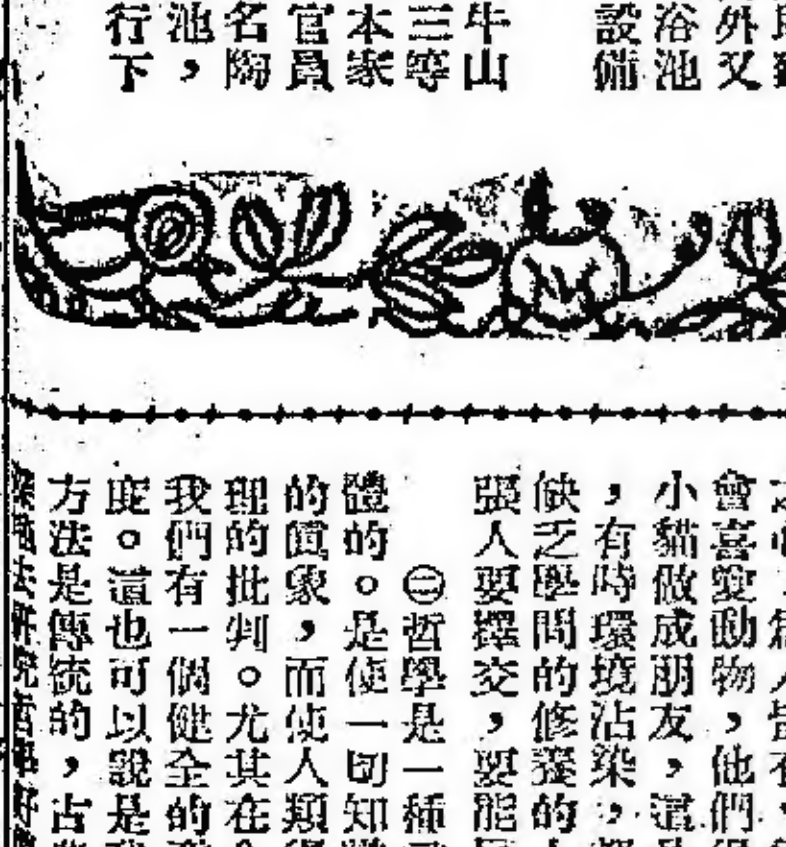 外又
浴池
設備
牛山
三等
本家
官員
名陶
池，
行下
會喜愛動物，他們
小貓做成朋友，這
，有時環境沾染，
缺乏學問的修養的
張人要擇交，要能
㊁哲學是一種
體的。是使一切知識
的眞象，而使人類
理的批判。尤其在
我們有一個健全的
度。這也可以說是
方法是傳統的，古